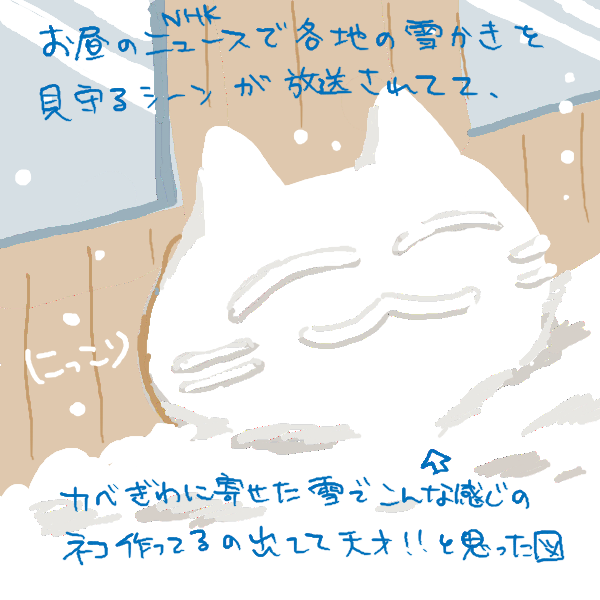 NHK
お昼のニュースで各地の雪かきを
見守るシーンが放送されてて、
(にっこり)
カベぎわに寄せた雪でこんな感じの
ネコ作ってるの出てて天才!!と思った図